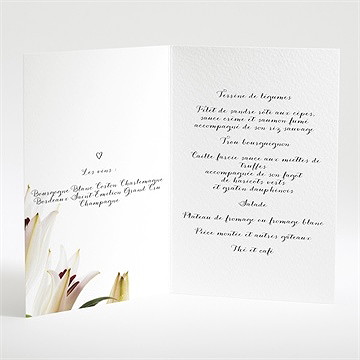 Les vins :
Bourgogne Blanc Corton Charlemagne
Bordeaux Saint-Emilion Grand Cru
Champagne
Terrine de légumes
Pâtit de sandre rôte aux cèpes,
sauce crème et saumon fumé
accompagné de son riz sauvage
Trou bourguignon
Caille farcie sauce aux miettes de
truffes
accompagnée de son fagot
de haricots verts
et gratin dauphinois
Salade
Plateau de fromage ou fromage blanc
Pièce montée et autres gâteaux
Thé et café